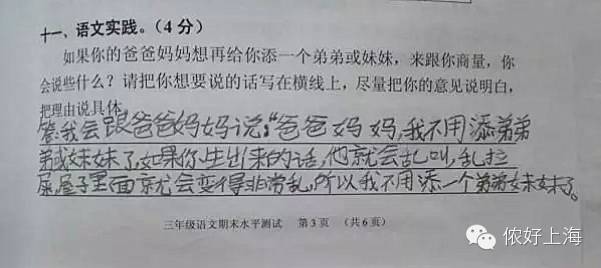 十一、语文实践。（4分）
如果你的爸爸妈妈想再给你添一个弟弟或妹妹，来跟你商量，你
会说些什么？请把你想要说的话写在横线上，尽量把你的意见说明白，
把理由说具体。
答：我会跟爸爸妈妈说：“爸爸妈妈，我不用添弟弟
弟或妹妹了，如果你生出来的话，他就会乱叫，乱拉
屎，屋子里面就会变得非常乱，所以我不用添一个弟弟妹妹了。
三年级语文期末水平测试 第3页 （共6页）
侬好上海